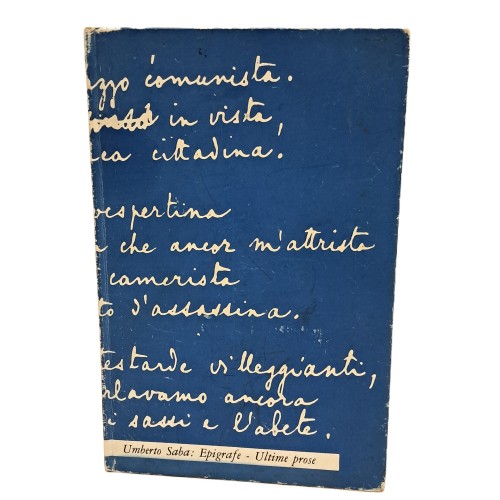 azzo comunista.
in vista,
ica cittadina.
vespertina
a che ancor m'attrista
camerista
to d'assassina.
testarde villeggianti,
rlavamo ancora
i sassi e l'abete.
Umberto Saba: Epigrafe - Ultime prose